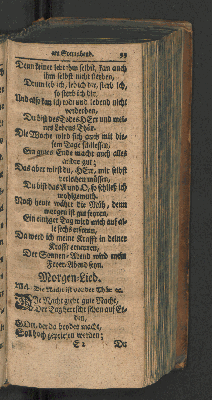 am Sonnabend. 93
Denn keiner lebt ihm selbst, kan auch
ihm selbst nicht sterben,
Denn leb ich, leb ich dir, sterb ich,
so sterb ich dir.
Und also kan ich todt und lebend nicht
verderben,
Du bist des Todes HErr und mei-
nes Lebens Thür.
Die Woche wird sich zwar mit die-
sem Tage schliessen,
Ein gutes Ende macht auch alles
ander gut;
Das aber wirst du, HErr, mir selbst
verleihen müssen,
Du bist das A und O, so schließ ich
wohlgemuth.
Noch heute währet die Müh, denn
morgen ist gut feyren,
Ein eintzger Tag wird mich auf al-
le sechs erfreuen,
Da werd ich meine Krafft in deiner
Krafft erneuren,
Der Sonnen-Abend wird mein
Feyer-Abend seyn.
Morgen-Lied.
Mel. Die Nacht ist vor der Thür ec.
DIe Nacht giebt gute Nacht,
Der Tag herrscht schon auf Er-
den,
GOtt, der da beydes macht,
Soll hoch gepriesen werden;